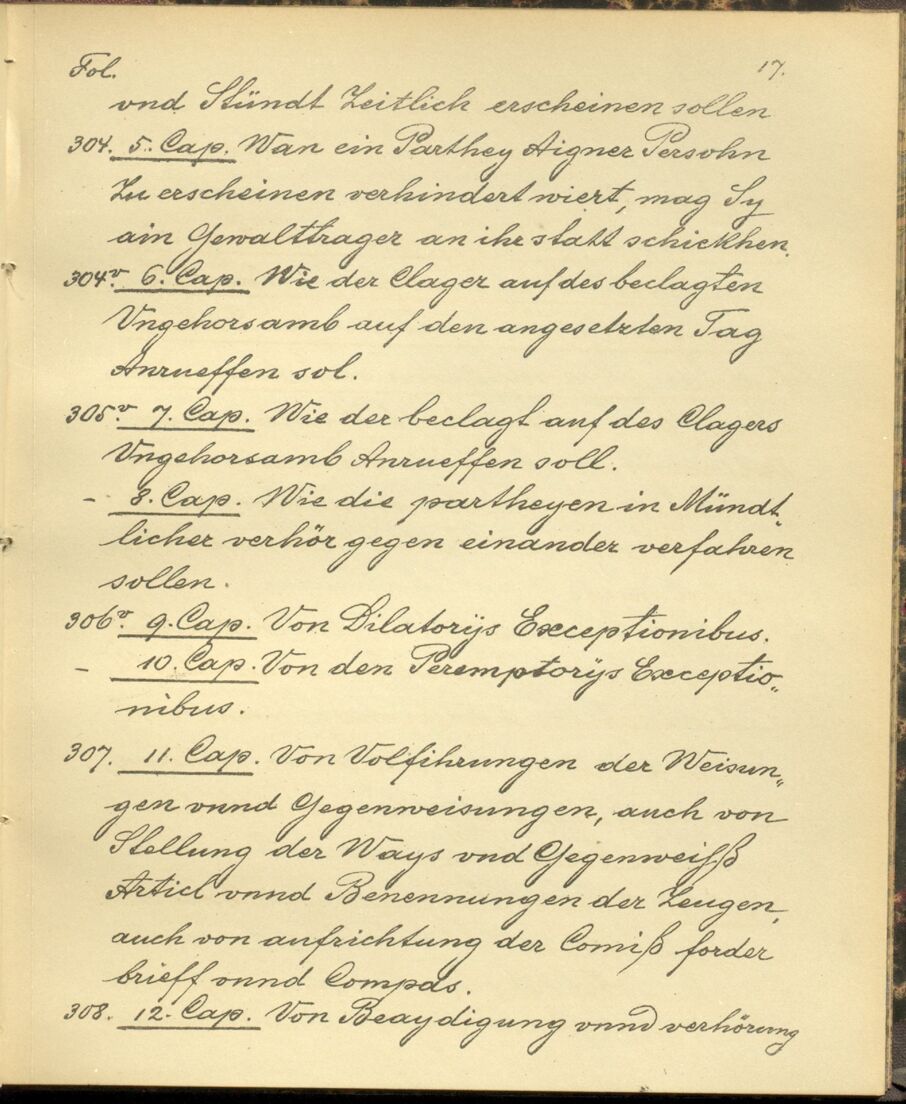 Fol. 17.
vnd Stündt Zeitlich erscheinen sollen
304. 5. Cap. Wan ein Parthey Aigner Persohn
Zu erscheinen verhindert wiert, mag Sy
ain Gewalttrager an ihr statt schickhen.
304v. 6. Cap. Wie der Clager auf des beclagten
Vngehorsamb auf den angesetzten Tag
Anrueffen sol.
305v. 7. Cap. Wie der beclagt auf des Clagers
Vngehorsamb Anrueffen soll.
- 8. Cap. Wie die partheyen in Mündt„
licher verhör gegen einander verfahren
sollen.
306v. 9. Cap. Von Dilatorijs Exceptionibus.
- 10. Cap. Von den Peremptorijs Exceptio„
nibus.
307. 11. Cap. Von Volfihrungen der Weisun„
gen vnnd Gegenweisungen, auch von
Stellung der Ways vnd Gegenweiß
Articl vnnd Benennungen der Zeugen,
auch von aufrichtung der Comiß forder
brieff vnnd Compas.
308. 12. Cap. Von Beaydigung vnnd verhörung